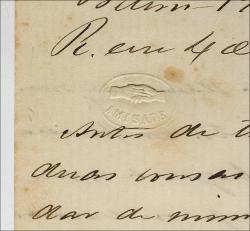 R. em 4 de
AMISADE
Antes de t
duas cousas
dar de mim